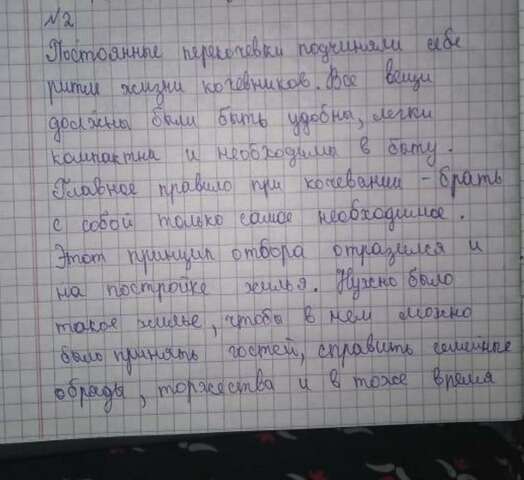 №2
Постоянные перекочевки подчиняли себе
ритм жизни кочевников. Все вещи
должны были быть удобны, легки
компактны и необходимы в быту.
Главное правило при кочевании - брать
с собой только самое необходимое.
Этот принцип отбора отразился и
на постройке жилья. Нужно было
такое жилье, чтобы в нем можно
было принять гостей, справить семейные
обряды, торжества и в тоже время